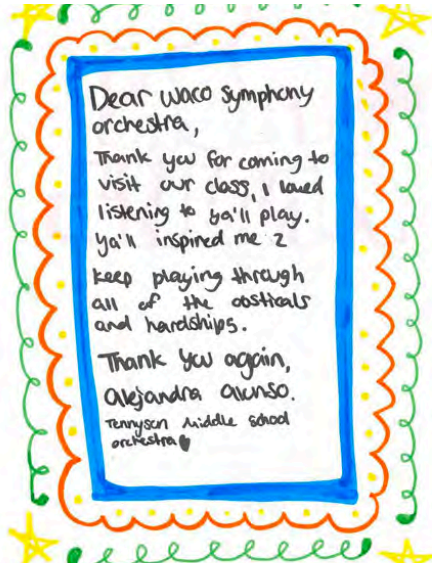 Dear Waco Symphony
orchestra,
Thank you for coming to
visit our class, I loved
listening to ya'll play.
Ya'll inspired me 2
keep playing through
all of the obsticals
and hardships.
Thank you again,
Alejandra Alonso.
Tennyson Middle School
orchestra